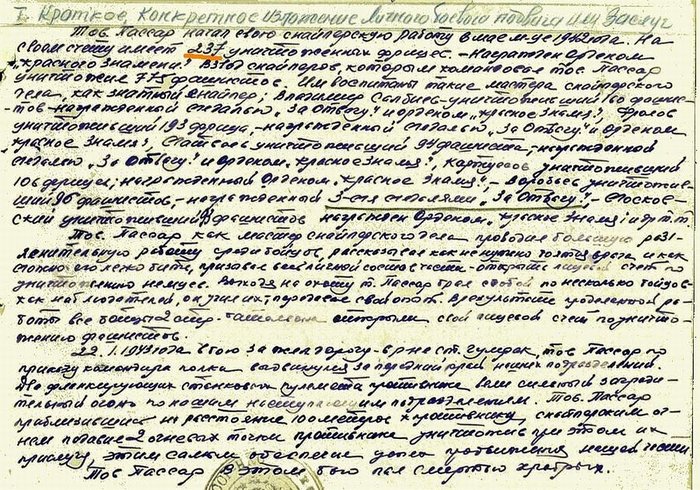 I. Краткое, конкретное изложение личного боевого подвига или заслуг
Тов. Пассар начал свою снайперскую работу в мае м-це 1942 года. На
своём счету имеет 237 уничтоженных фрицев. - Награжден Орденом
"Красного Знамени". Взвод снайперов, которым командовал тов. Пассар
уничтожил 775 фашистов. Им воспитаны такие мастера снайперского
дела, как знатный снайпер; Владимир уничтоживший 160 фашис-
тов - награжденный медалью "За Отвагу" и орденом "Красное Знамя", Фролов
уничтоживший 193 фрица, - награжденный медалью "За Отвагу" и Орденом
"Красное Знамя", уничтоживший фашиста, - награжденный
медалью "За Отвагу" и Орденом "Красное Знамя", Карпусов уничтоживший
106 фрицев; награжденный Орденом "Красное Знамя", - Воробьев уничтожив-
ший 96 фашистов, - награжденный 3-мя медалями "За Отвагу", -
ский уничтоживший фашистов награжден Орденом "Красное Знамя" и др. т.т.
Тов. Пассар как мастер снайперского дела проводил большую разъ-
яснительную работу среди бойцов, рассказывая как не нужно боятся врага и как
его легко бить, призывал весь личный состав части - открыть лицевой счет по
уничтожению немцев. Выходя на охоту т. Пассар брал с собой по несколько бойцов
как наблюдателей, он учил их, передавая свой опыт. В результате проделанной ра-
боты все бойцы 2 стр. батальона открыли свой лицевой счет по уничто-
жению фашистов.
22.1.1943 года в бою за жел. дорогу - в р-не ст. Гумрак, тов. Пассар по
приказу командира полка выдвинулся за передний край наших подразделений.
Два фланкирующих станковых пулемета противника вели сильный заградитель-
тельный огонь по нашим наступающим подразделениям. Тов. Пассар
приблизившись на расстояние 100 метров к противнику, снайперским ог-
нем подавил 2 огневых точки противника уничтожив при этом их
прислугу, этим самым обеспечив успех продвижения нашей части.
Тов. Пассар в этом бою пал смертью храбрых.